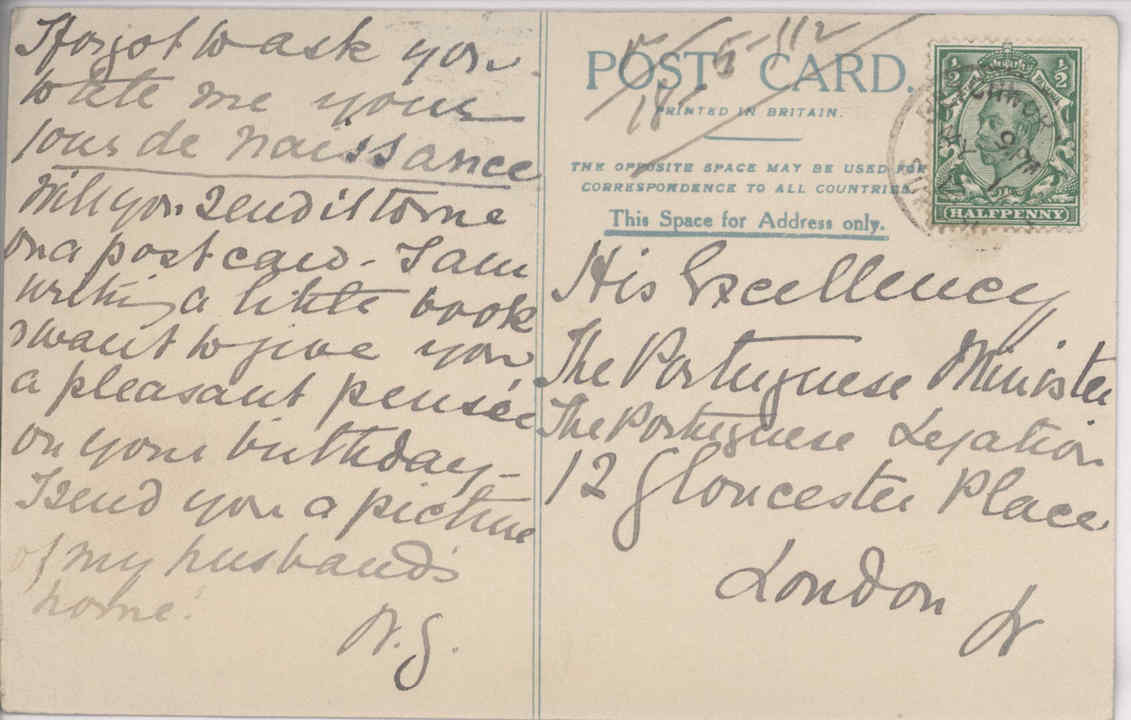 I forgot to ask you
to tell me your
jour de naissance
Will you send it to me
on a postcard - I am
writing a little book
I want to give you
a pleasant pensée
on your birthday -
I send you a picture
of my husband's
home.
POST CARD.
PRINTED IN BRITAIN.
THE OPPOSITE SPACE MAY BE USED FOR
CORRESPONDENCE TO ALL COUNTRIES.
This Space for Address only.
½ ½
HALFPENNY
His Excellency
The Portuguese Minister
The Portuguese Legation
12 Gloucester Place
London W